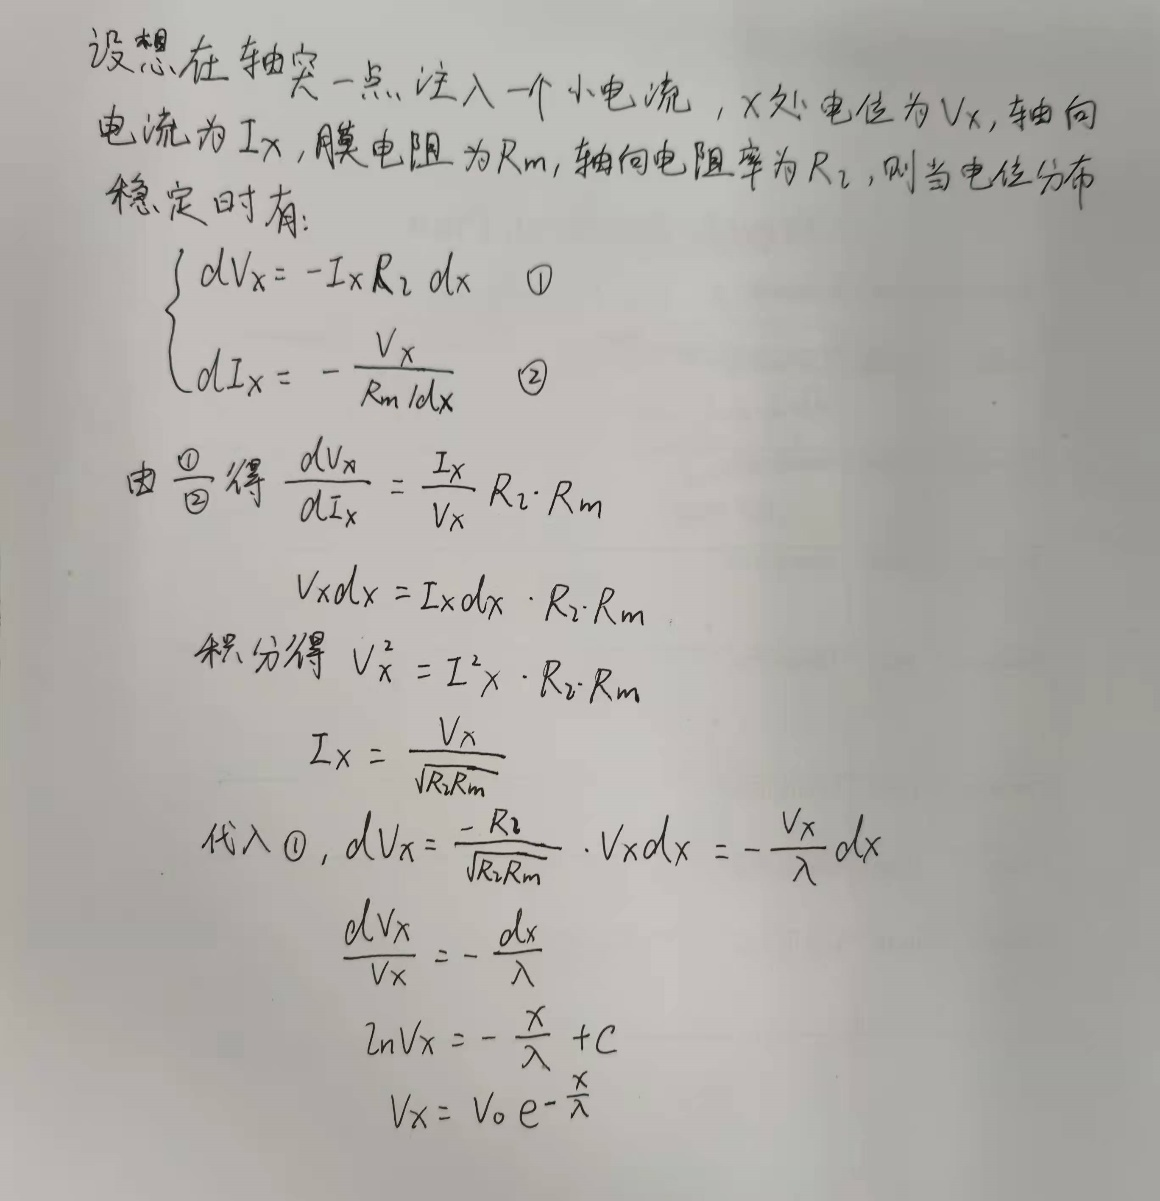 设想在轴突一点注入一个小电流，x处电位为Vx，轴向
电流为Ix，膜电阻为Rm，轴向电阻率为Rl，则当电位分布
稳定时有：
dVx = -IxRl dx ①
dIx = - Vx / (Rm/dx) ②
由①/②得 dVx/dIx = Ix/Vx Rl·Rm
Vxdx = Ixdx · Rl·Rm
积分得 Vx² = I²x · Rl·Rm
Ix = Vx/√RlRm
代入①，dVx = -Rl/√RlRm · Vxdx = - Vx/λ dx
dVx/Vx = - dx/λ
lnVx = - x/λ + C
Vx = V₀ e^(-x/λ)